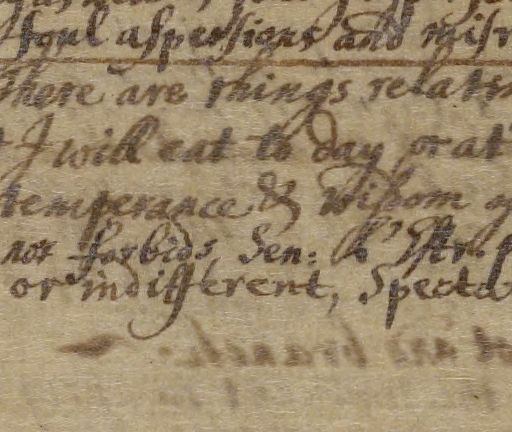 foul aspersions and misr
There are things relati
I will eat to day or at
temperance & wisdom
not forbids, Sen:
or indifferent, Specta